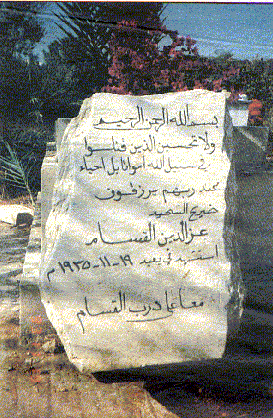 بسم الله الرحمن الرحيم
ولا تحسبن الذين قتلوا
في سبيل الله أمواتا بل احياء
عند ربهم يرزقون
ضريح الشهيد
عز الدين القسام
استشهد في يعبد ١٩-١١-١٩٣٥ م
معا على درب القسام